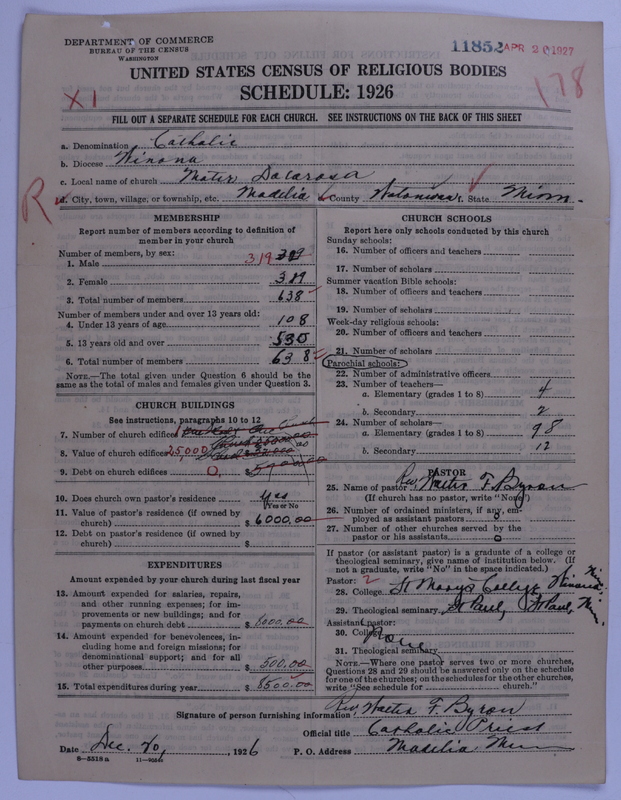 DEPARTMENT OF COMMERCE
BUREAU OF THE CENSUS
WASHINGTON
11852 APR 20 1927
UNITED STATES CENSUS OF RELIGIOUS BODIES
SCHEDULE: 1926
X 1
178
FILL OUT A SEPARATE SCHEDULE FOR EACH CHURCH. SEE INSTRUCTIONS ON THE BACK OF THIS SHEET
a. Denomination Catholic
b. Diocese Winona
c. Local name of church Mater
R
d. City, town, village, or township, etc. Madelia County State Minn.
MEMBERSHIP
Report number of members according to definition of
member in your church
Number of members, by sex:
1. Male 319
2. Female 319
3. Total number of members 638
Number of members under and over 13 years old:
4. Under 13 years of age 108
5. 13 years old and over 530
6. Total number of members 638
NOTE.—The total given under Question 6 should be the
same as the total of males and females given under Question 3.
CHURCH BUILDINGS
See instructions, paragraphs 10 to 12
7. Number of church edifices 1
8. Value of church edifices 25,000
9. Debt on church edifices 0, $
10. Does church own pastor's residence Yes
Yes or No
11. Value of pastor's residence (if owned by
church) $ 6000.00
12. Debt on pastor's residence (if owned by
church) $
EXPENDITURES
Amount expended by your church during last fiscal year
13. Amount expended for salaries, repairs,
and other running expenses; for im-
provements or new buildings; and for
payments on church debt $ 8000.00
14. Amount expended for benevolences, in-
cluding home and foreign missions; for
denominational support; and for all
other purposes $ 500.00
15. Total expenditures during year $ 8500.00
CHURCH SCHOOLS
Report here only schools conducted by this church
Sunday schools:
16. Number of officers and teachers
17. Number of scholars
Summer vacation Bible schools:
18. Number of officers and teachers
19. Number of scholars
Week-day religious schools:
20. Number of officers and teachers
21. Number of scholars
Parochial schools:
22. Number of administrative officers
23. Number of teachers—
a. Elementary (grades 1 to 8) 4
b. Secondary 2
24. Number of scholars—
a. Elementary (grades 1 to 8) 98
b. Secondary 12
PASTOR
25. Name of pastor Rev. Walter F. Byron
(If church has no pastor, write "None")
26. Number of ordained ministers, if any, em-
ployed as assistant pastors 0
27. Number of other churches served by the
pastor or his assistants 0
If pastor (or assistant pastor) is a graduate of a college or
theological seminary, give name of institution below. (If
not a graduate, write "No" in the space indicated.)
Pastor: 2
28. College St Marys College Winona Minn.
29. Theological seminary St Paul, St Paul, Minn.
Assistant pastor:
30. College None
31. Theological seminary
NOTE.—Where one pastor serves two or more churches,
Questions 28 and 29 should be answered only on the schedule
for one of the churches; on the schedules for the other churches,
write "See schedule for church."
Signature of person furnishing information Rev Walter F. Byron
Official title Catholic Priest
Date Dec. 20, 1926 P. O. Address Madelia Minn
8—5518 a